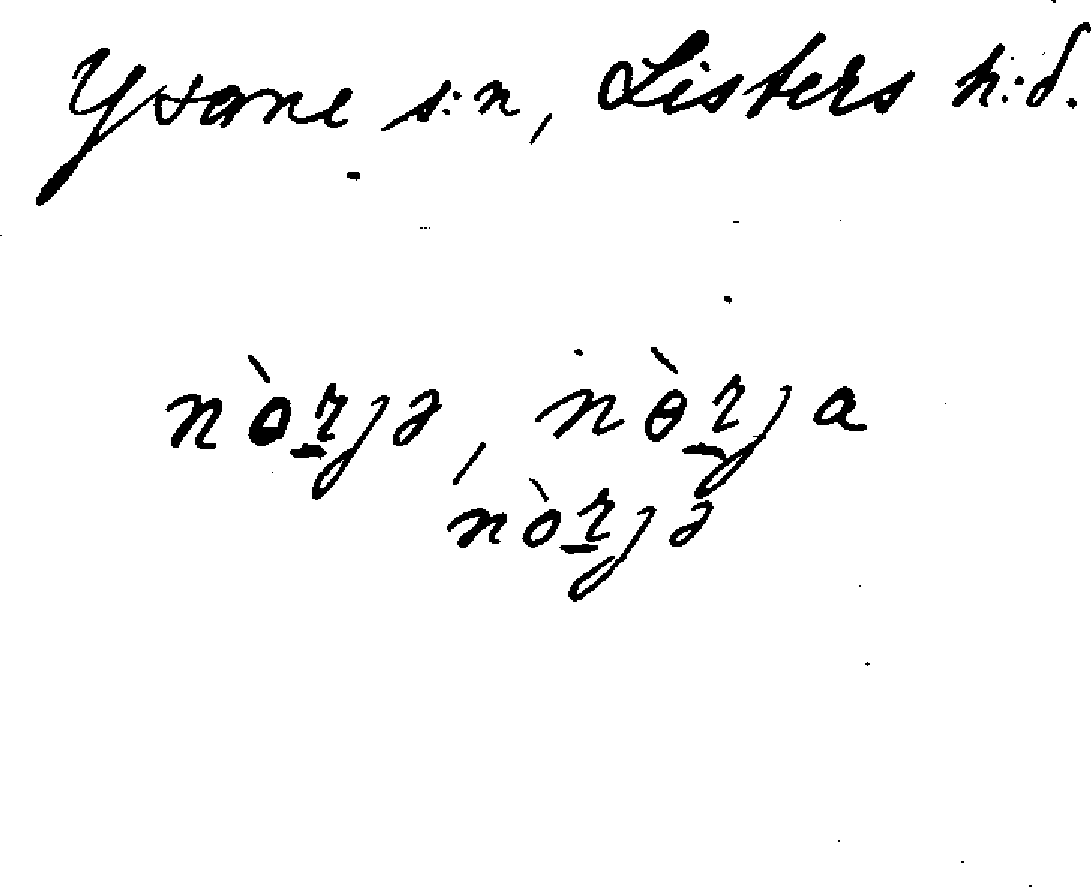 Ysane s:n, Listers h:d.
nòɽjə, nɵ̀ɽja
nòɽjə